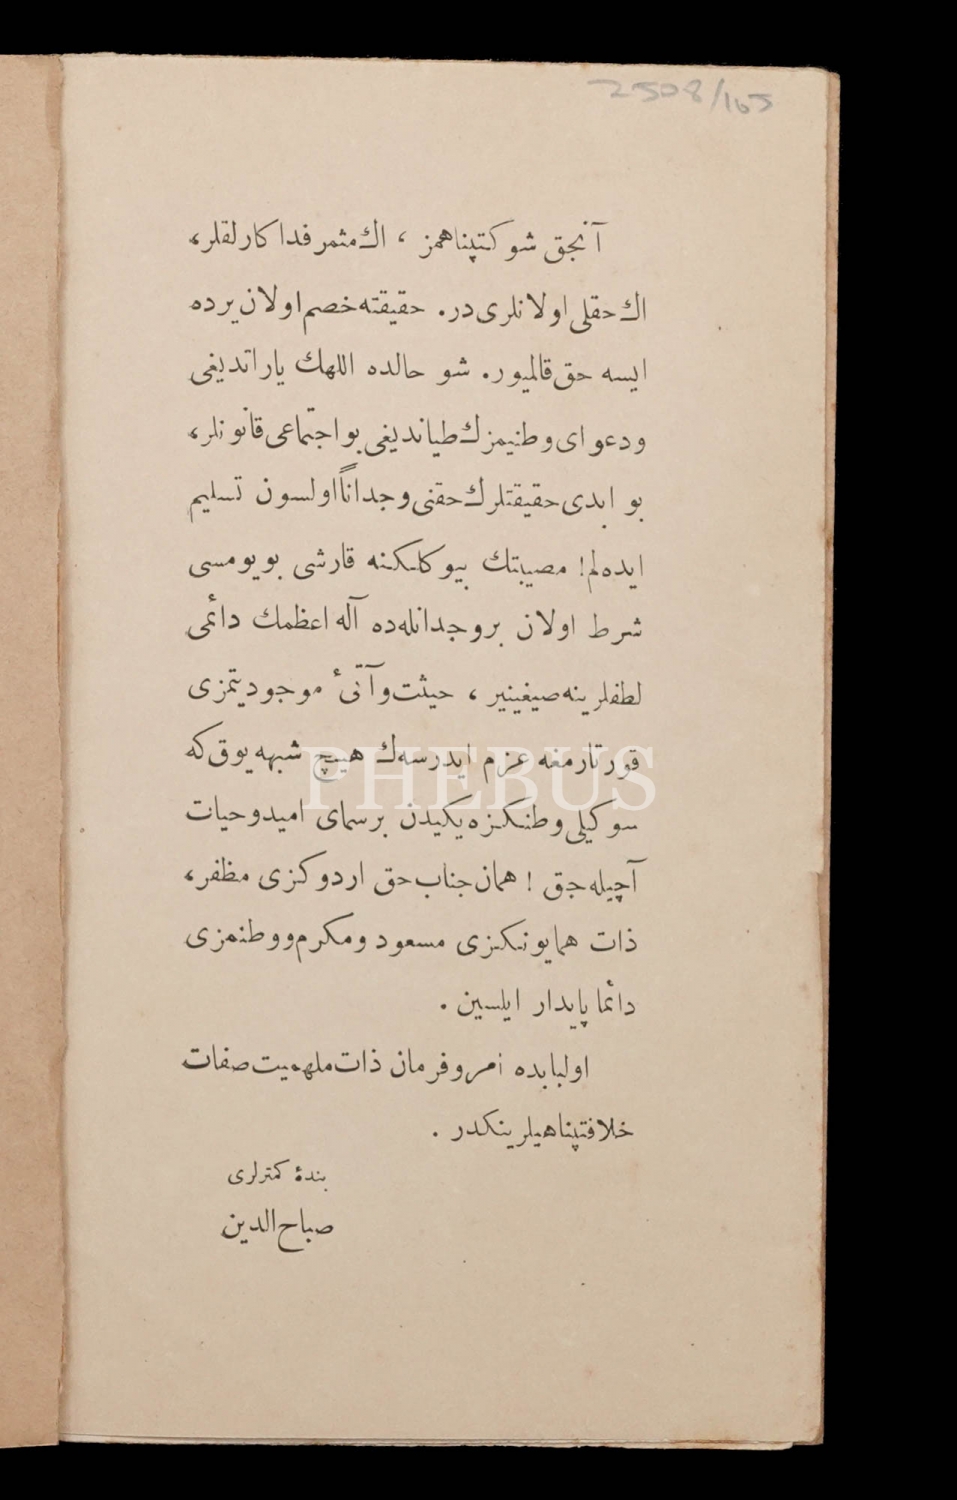 2508/165
آنجق شوكتپناهمز ، اك مثمر فداكارلقلر،
اك حقلى اولانلرى در. حقيقته خصم اولان يرده
ايسه حق قالميور. شو حالده اللهك ياراتديغى
ودعواى وطنيمزك طياندیغى بو اجتماعى قانونلر،
بو ابدى حقيقتلرك حقنى وجداناً اولسون تسليم
ايده لم! مصيبتك بيوكلكنه قارشى بويومسى
شرط اولان بر وجدانله ده آله اعظمك دائمى
لطفلرينه صيغينير ، حيثت و آتىٔ موجوديتمزى
قورتارمغه عزم ايدرسه ك هيچ شبهه يوق كه
سوكيلى وطنكزه يكيدن بر سماى اميد و حيات
آچيله جق ! همان جناب حق اردوكزى مظفر،
ذات همايونكزى مسعود و مكرم و وطنمزى
دائما پايدار ايلسين .
اولبابده امر و فرمان ذات ملهميت صفات
خلافتپناهيلرينكدر .
بندهٔ كمترلرى
صباح الدين
PHEBUS